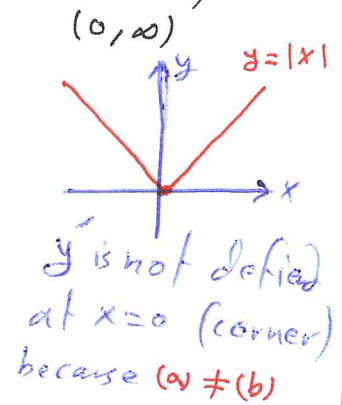 (0, ∞)
y
y = |x|
x
y' is not defied
at x=0 (corner)
because (a) ≠ (b)